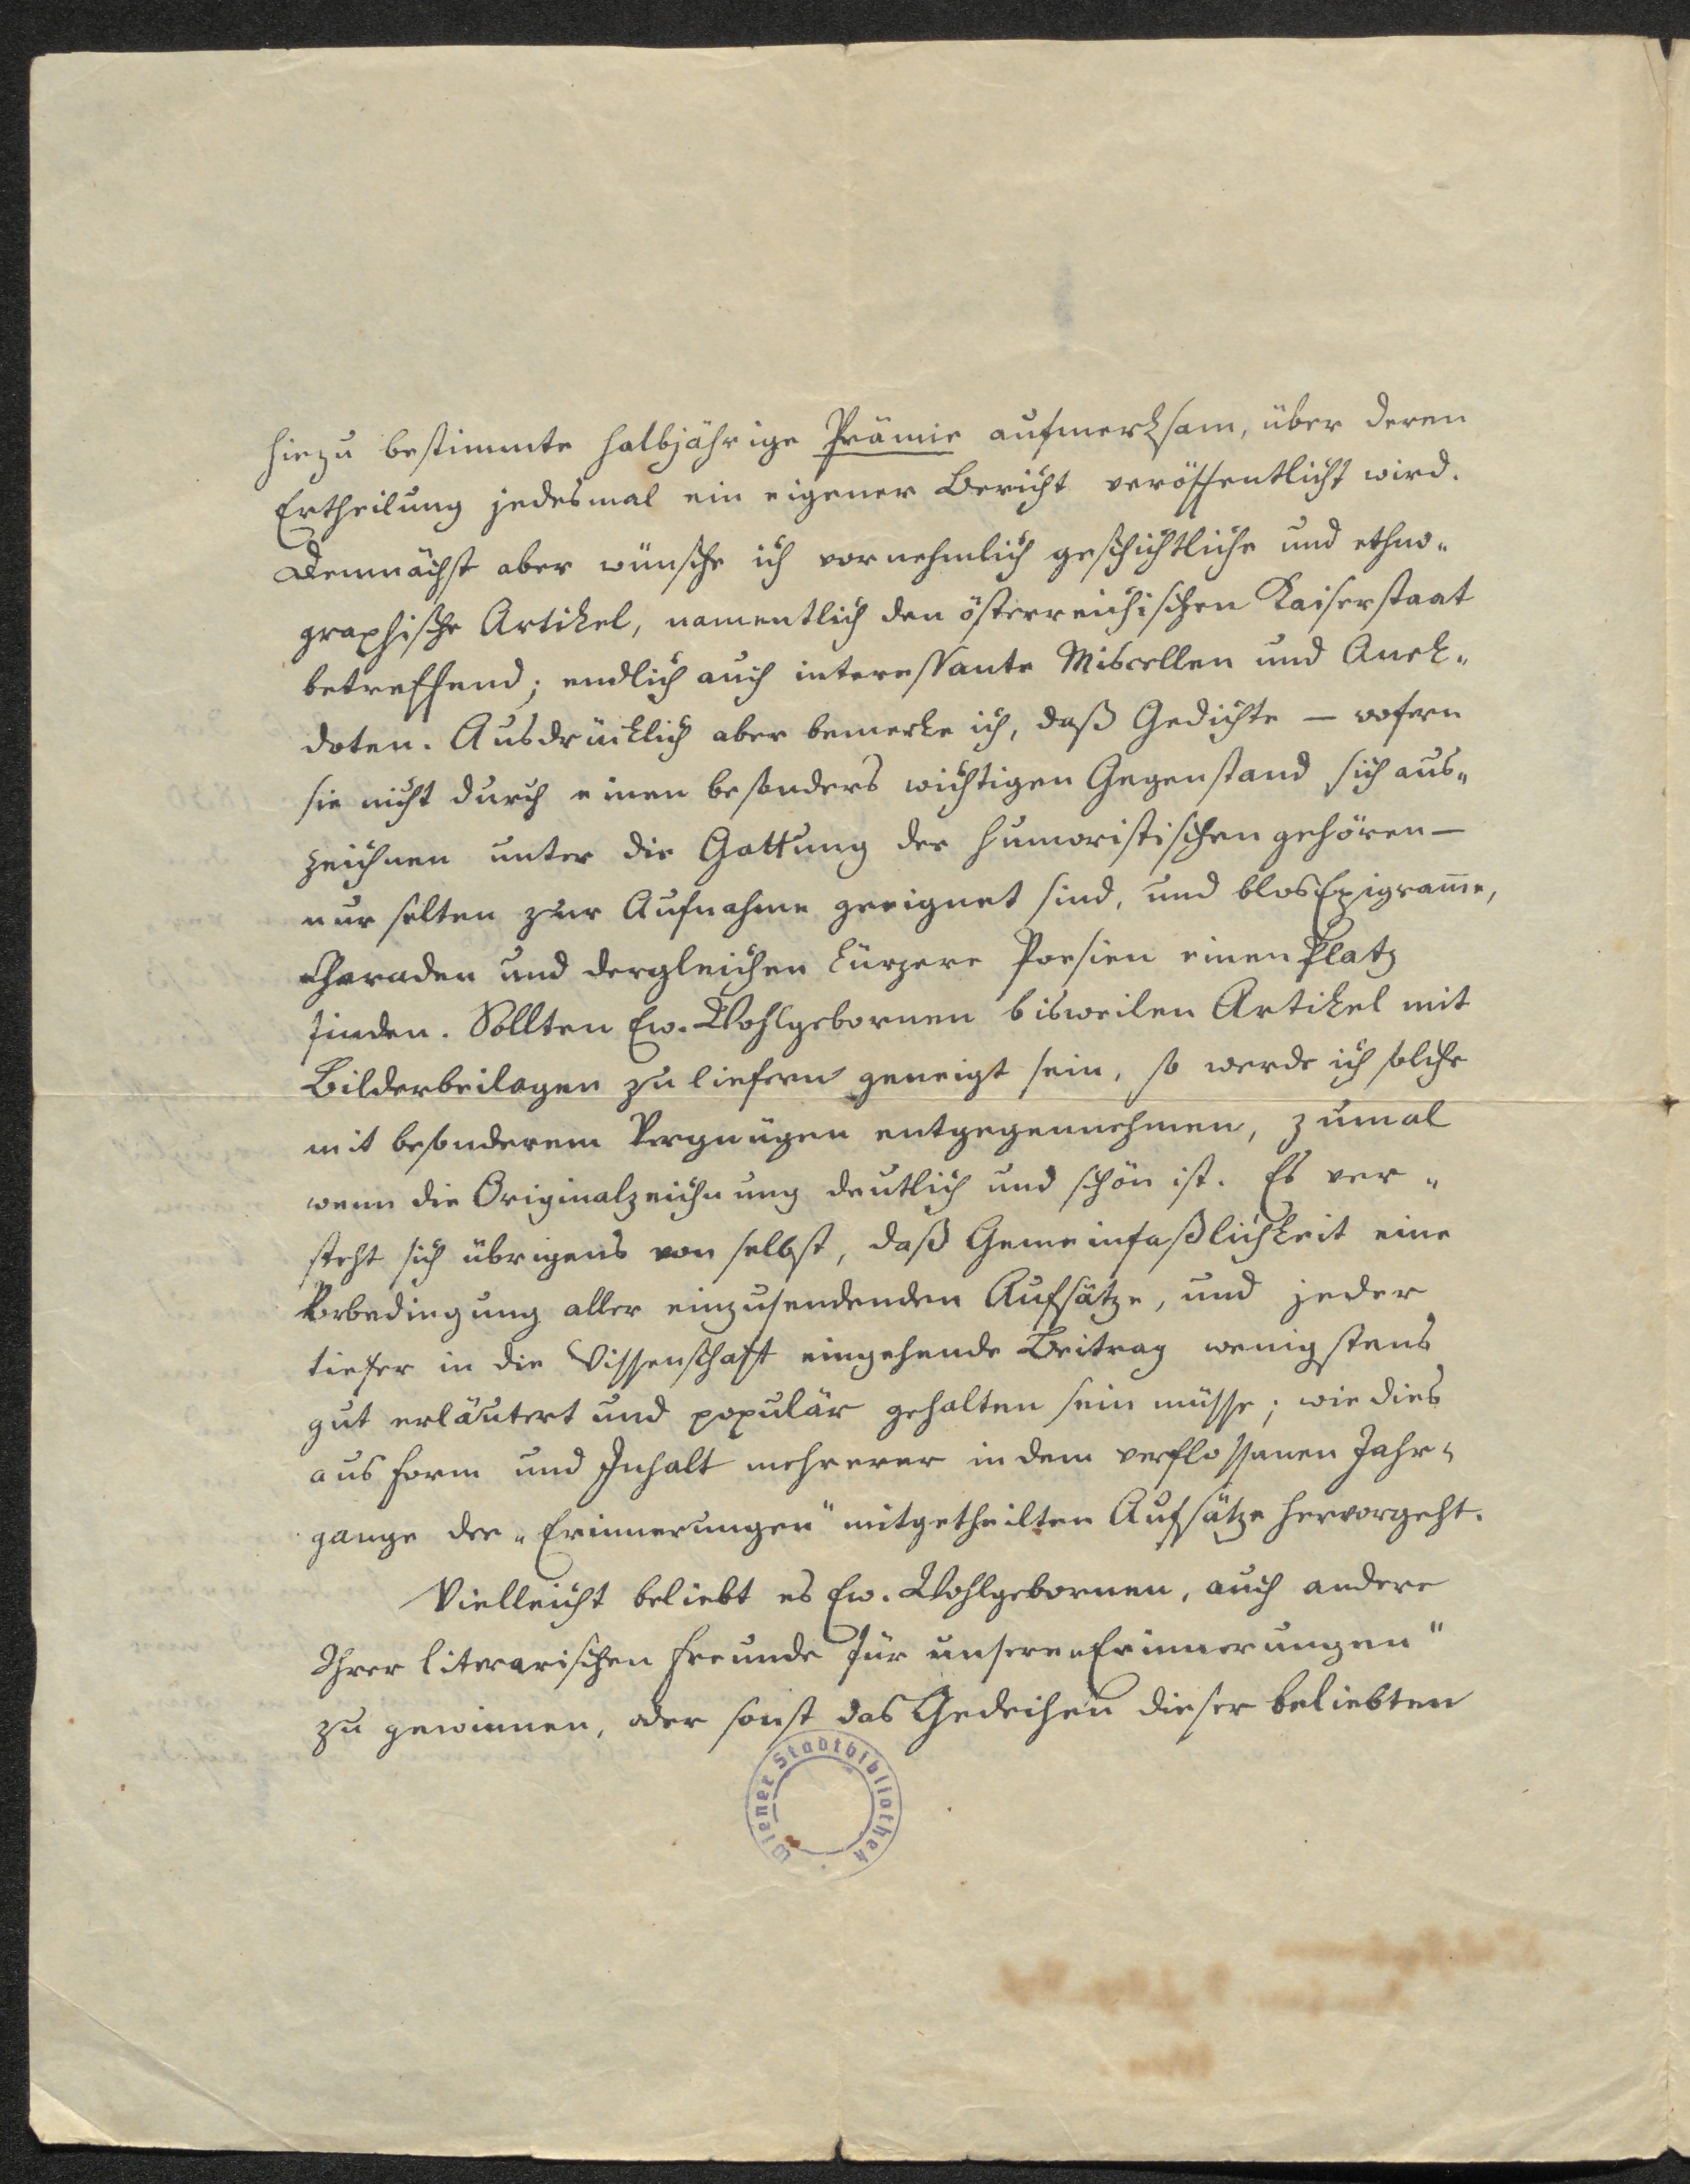 hiezu bestimmte halbjährige Prämie aufmerksam, über deren
Ertheilung jedesmal ein eigener Bericht veröffentlicht wird.
Demnächst aber wünsche ich vornehmlich geschichtliche und ethno-
graphische Artikel, namentlich den österreichischen Kaiserstaat
betreffend; endlich auch interessante Miscellen und Anek-
doten. Ausdrücklich aber bemerke ich, daß Gedichte — wofern
sie nicht durch einen besonders wichtigen Gegenstand sich aus-
zeichnen unter die Gattung der humoristischen gehören —
nur selten zur Aufnahme geeignet sind, und blos Epigram̄e,
Charaden und dergleichen kürzere Poesien einen Platz
finden. Sollten Ew. Wohlgebornen bisweilen Artikel mit
Bilderbeilagen zu liefern geneigt sein, so werde ich solche
mit besonderem Vergnügen entgegennehmen, zumal
wenn die Originalzeichnung deutlich und schön ist. Es ver-
steht sich übrigens von selbst, daß Gemeinfaßlichkeit eine
Vorbedingung aller einzusendenden Aufsätze, und jeder
tiefer in die Wissenschaft eingehende Beitrag wenigstens
gut erläutert und populär gehalten sein müsse; wie dies
aus Form und Inhalt mehrerer in dem verflossenen Jahr-
gange der „Erinnerungen" mitgetheilten Aufsätze hervorgeht.
Vielleicht beliebt es Ew. Wohlgebornen, auch andere
Ihrer literarischen Freunde für unsere „Erinnerungen"
zu gewinnen, oder sonst das Gedeihen dieser beliebten
Wiener Stadtbibliothek